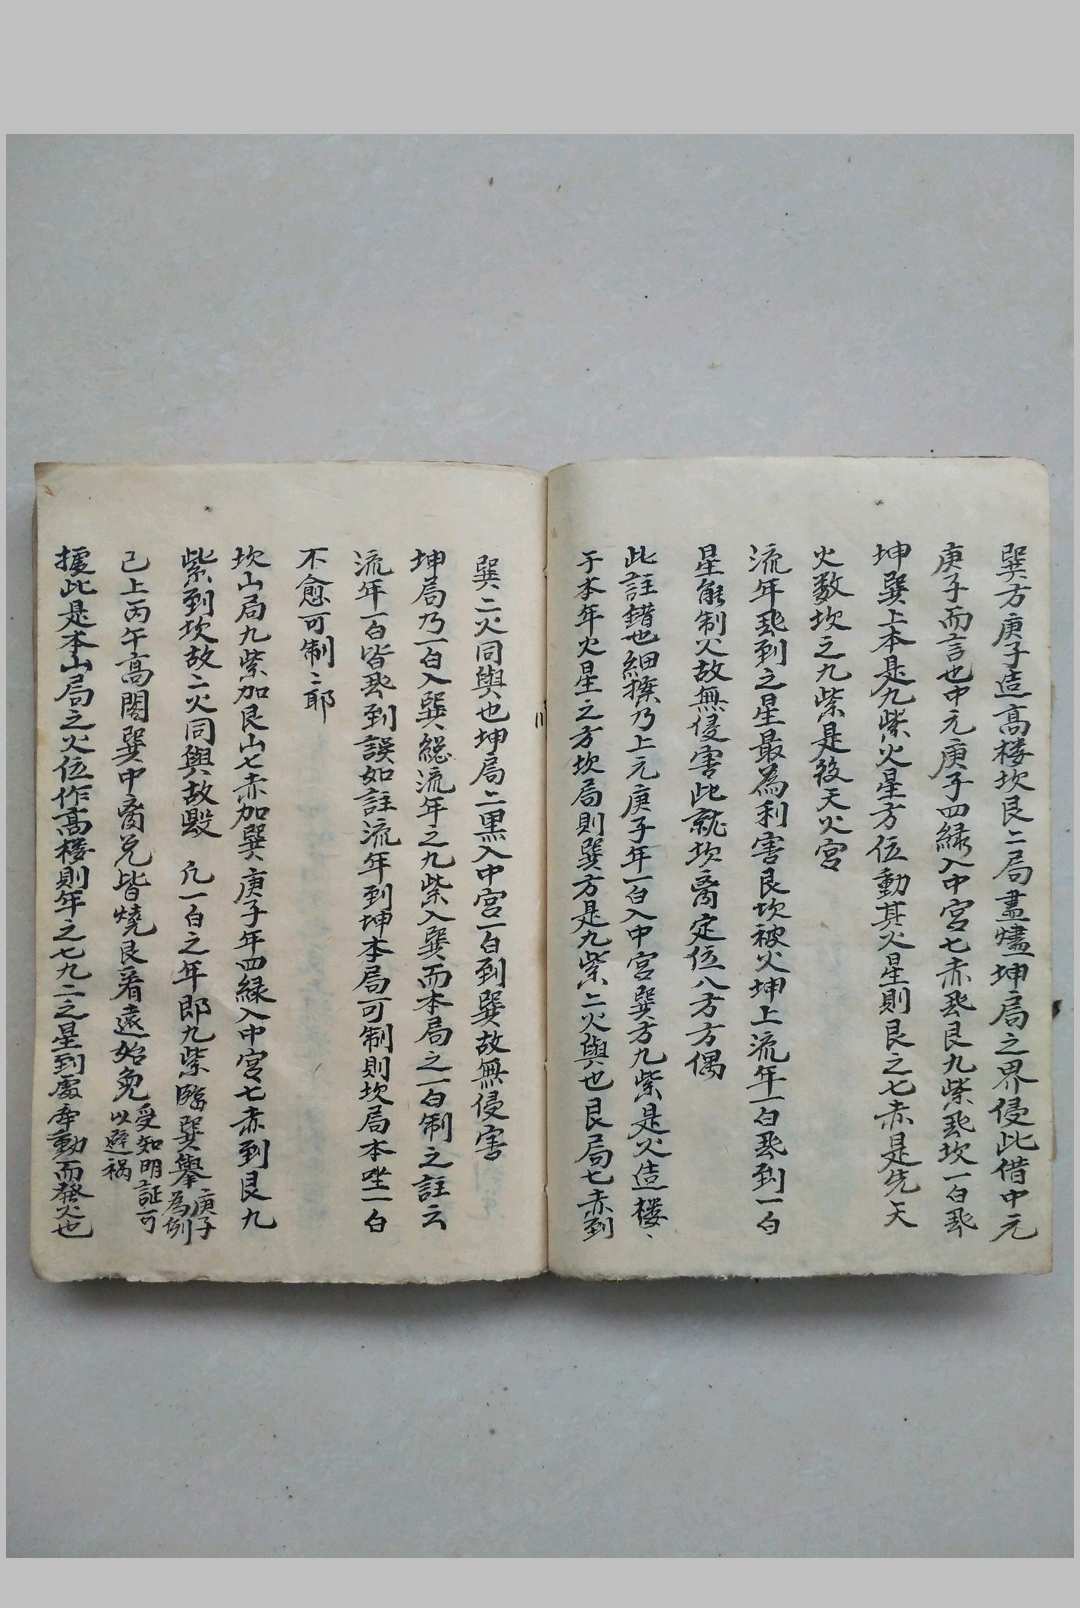 巽方庚子造高楼坎艮二局盡燼坤局之界侵此借中元
庚子而言也中元庚子四緑入中宮七赤飛艮九紫飛坎一白飛
坤巽上本是九紫火星方位動其火星則艮之七赤是先天
火数坎之九紫是後天火宮
流年飛到之星最為利害艮坎被火坤上流年一白飛到一白
星能制火故無侵害此就坎离定位八方方偶
此註錯也細揆乃上元庚子年一白入中宮巽方九紫是火造楼
于本年火星之方坎局則巽方是九紫二火與也艮局七赤到
巽二火同與也坤局二黒入中宮一白到巽故無侵害
坤局乃一白入巽縂流年之九紫入巽而本局之一白制之註云
流年一白皆飛到誤如註流年到坤本局可制則坎局本坐一白
不愈可制之耶
坎山局九紫加艮山七赤加巽庚子年四緑入中宮七赤到艮九
紫到坎故二火同與故毁 凢一白之年即九紫臨巽舉庚子為例
己上丙午高閣巽中离兌皆燒艮看遠始免受如明証可以避禍
據此是本山局之火位作高楼則年之七九二之星到處牽動而發火也
川